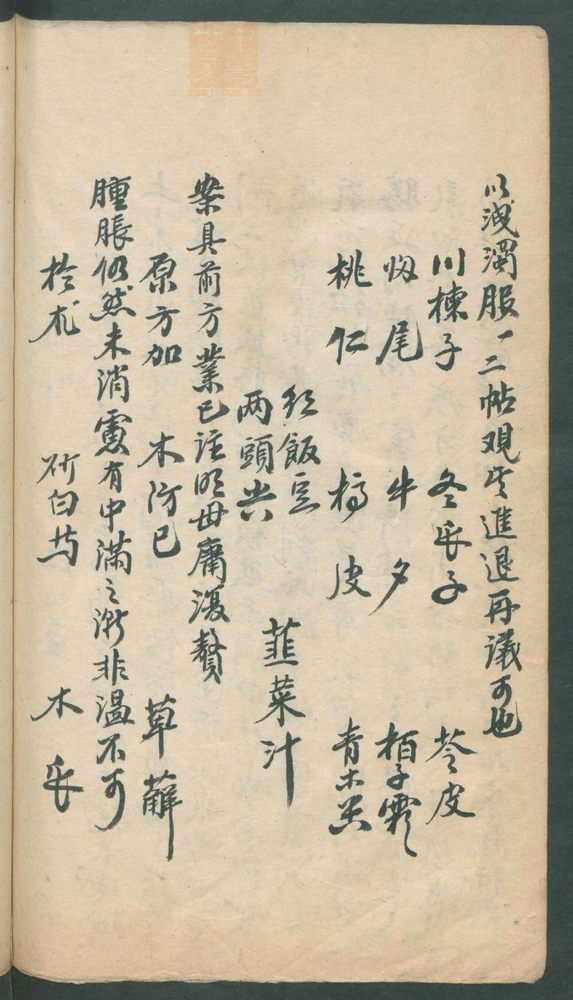 以洩濁服一二帖观其進退再議可也
川楝子 冬瓜子 苓皮
归尾 牛夕 柏子霜
桃仁 橘皮 青木香
红飯豆 韮菜汁
两頭尖
案具前方業已註明毋庸復贅
原方加 木防已 草薢
腫脹仍然未消慮有中滿之漸非温不可
於朮 炒白芍 木瓜